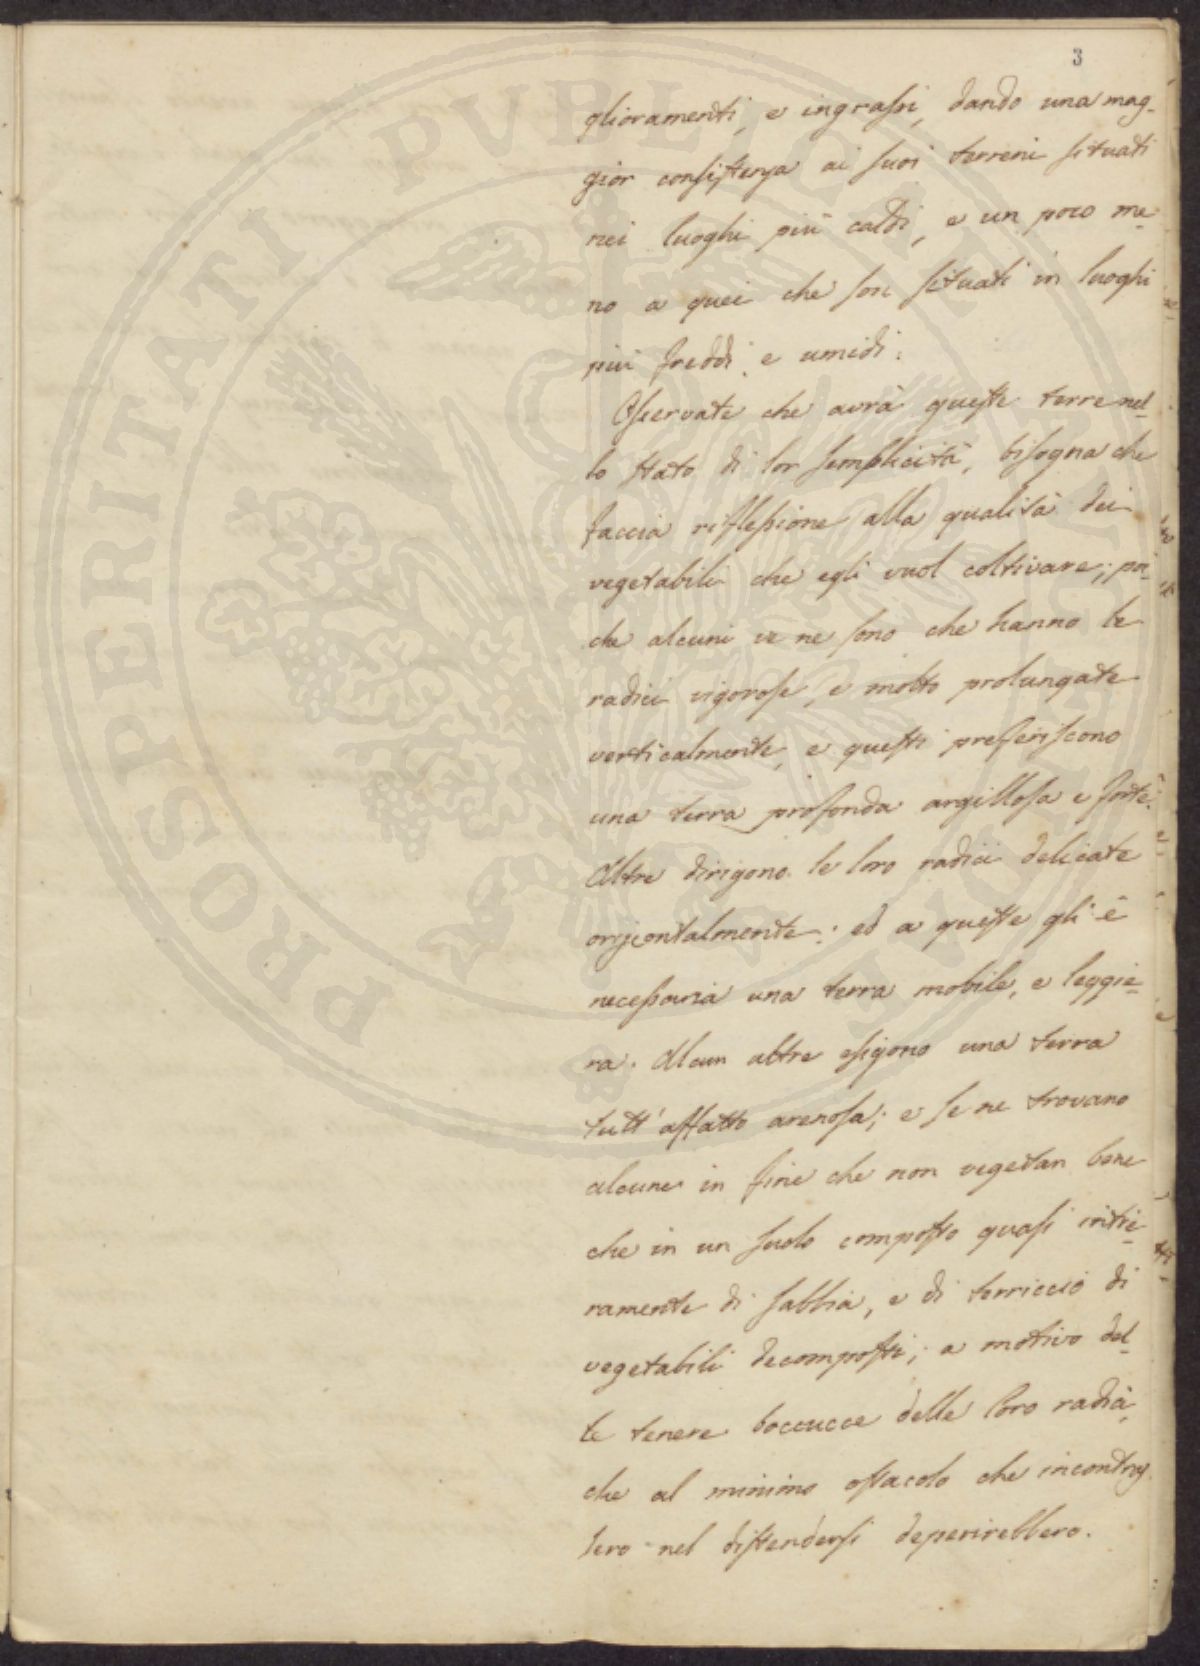 3
glioramenti, e ingrassi, dando una mag-
gior consistenza ai suoi terreni situati
nei luoghi più caldi, e un poco me-
no a quei che son situati in luoghi
più freddi, e umidi.
Osservate che avrà queste terre nel-
lo stato di lor semplicità, bisogna che
faccia riflessione alla qualità dei
vegetabili che egli vuol coltivare; poi-
che alcuni ve ne sono che hanno le
radici vigorose, e molto prolungate
verticalmente, e questi preferiscono
una terra profonda argillosa e forte.
Altre dirigono le loro radici delicate
orizontalmente: ed a queste gli è
necessaria una terra mobile, e leggie-
ra. Alcun altre esigono una terra
tutt'affatto arenosa; e se ne trovano
alcune in fine che non vegetan bene
che in un suolo composto quasi intie-
ramente di sabbia, e di terriccio di
vegetabili decomposti; a motivo del-
le tenere boccucce delle loro radici,
che al minimo ostacolo che incontras-
sero nel distendersi deperirebbero.
PROSPERITATI PVBLICAE